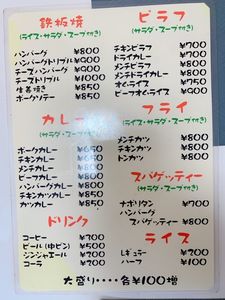 鉄板焼
(ライス・サラダ・スープ付き)
ハンバーグ ¥800
ハンバーグトリプル ¥900
チーズハンバーグ ¥900
チーズトリプル ¥1000
生姜焼き ¥850
ポークソテー ¥850
カレー
(サラダ・スープ付き)
ポークカレー ¥650
チキンカレー ¥750
メンチカレー ¥800
ビーフカレー ¥800
ハンバーグカレー ¥800
チキンカツカレー ¥850
カツカレー ¥850
ドリンク
コーヒー ¥200
ビール(中ビン) ¥500
ジンジャエール ¥200
コーラ ¥200
ピラフ
(サラダ・スープ付き)
チキンピラフ ¥700
ドライカレー ¥700
メンチピラフ ¥800
メンチドライカレー ¥800
オムライス ¥750
ビーフオムライス ¥900
フライ
(ライス・サラダ・スープ付き)
メンチカツ ¥800
チキンカツ ¥800
トンカツ ¥800
スパゲッティー
(サラダ・スープ付き)
ナポリタン ¥700
ハンバーグ
スパゲッティー ¥800
ライス
レギュラー ¥200
ハーフ ¥100
大盛り・・・・各¥100増